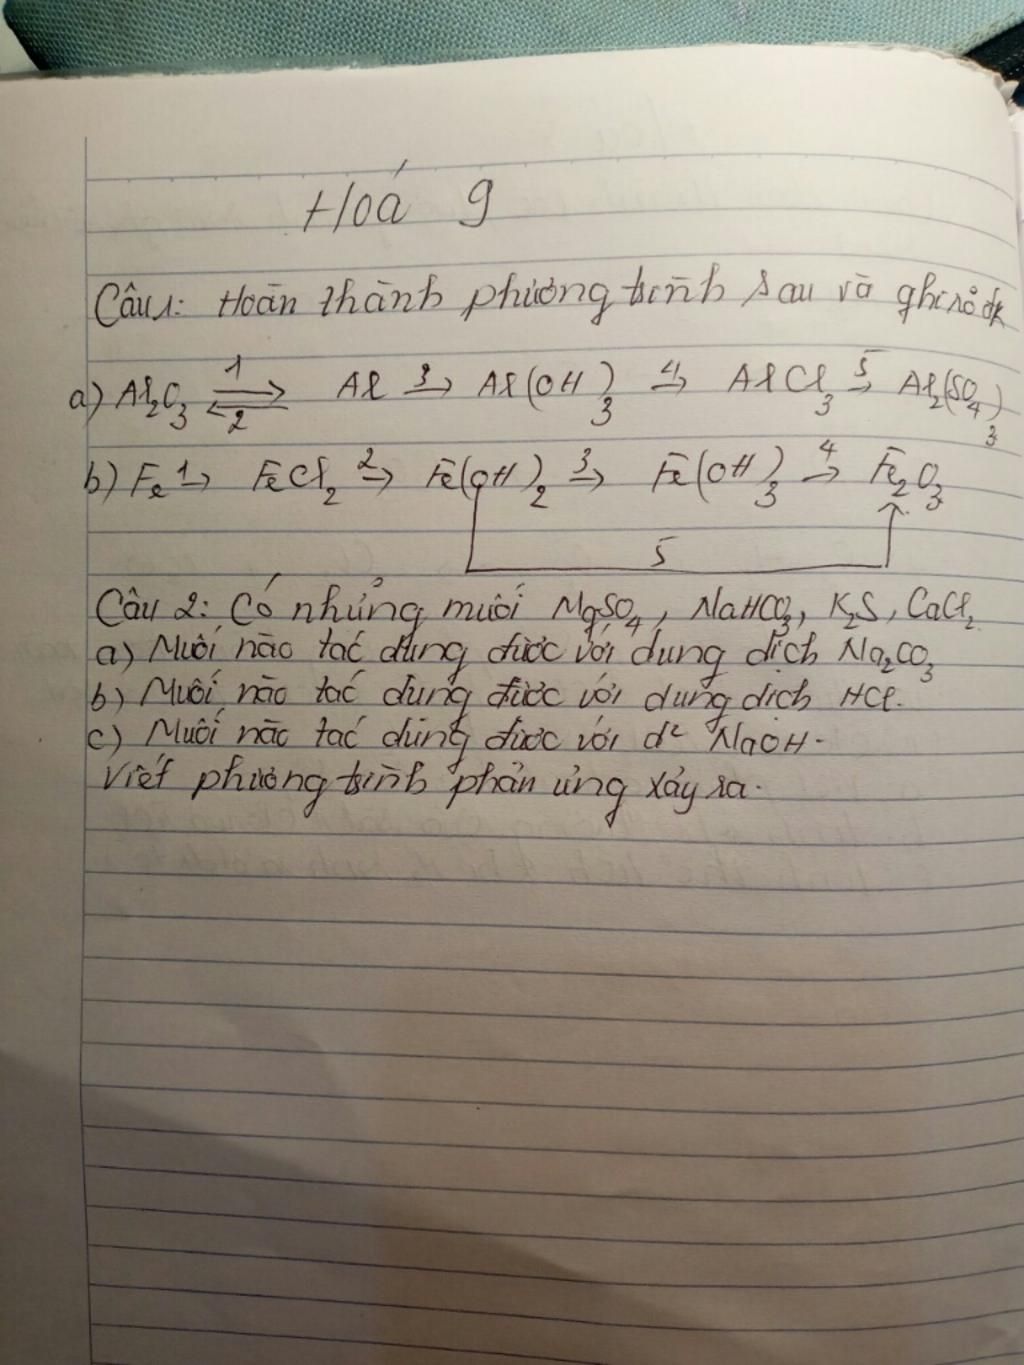 Hoá 9
Câu 1: Hoàn thành phương trình sau và ghi rõ đk
a) Al₂O₃ ⇌ Al → Al(OH)₃ → AlCl₃ → Al₂(SO₄)₃ 1 2 3 4 5
b) Fe → FeCl₂ → Fe(OH)₂ → Fe(OH)₃ → Fe₂O₃ 1 2 3 4
5
Câu 2: Có những muối MgSO₄, NaHCO₃, K₂S, CaCl₂
a) Muối nào tác dụng được với dung dịch Na₂CO₃
b) Muối nào tác dụng được với dung dịch HCl.
c) Muối nào tác dụng được với d² NaOH.
Viết phương trình phản ứng xảy ra.